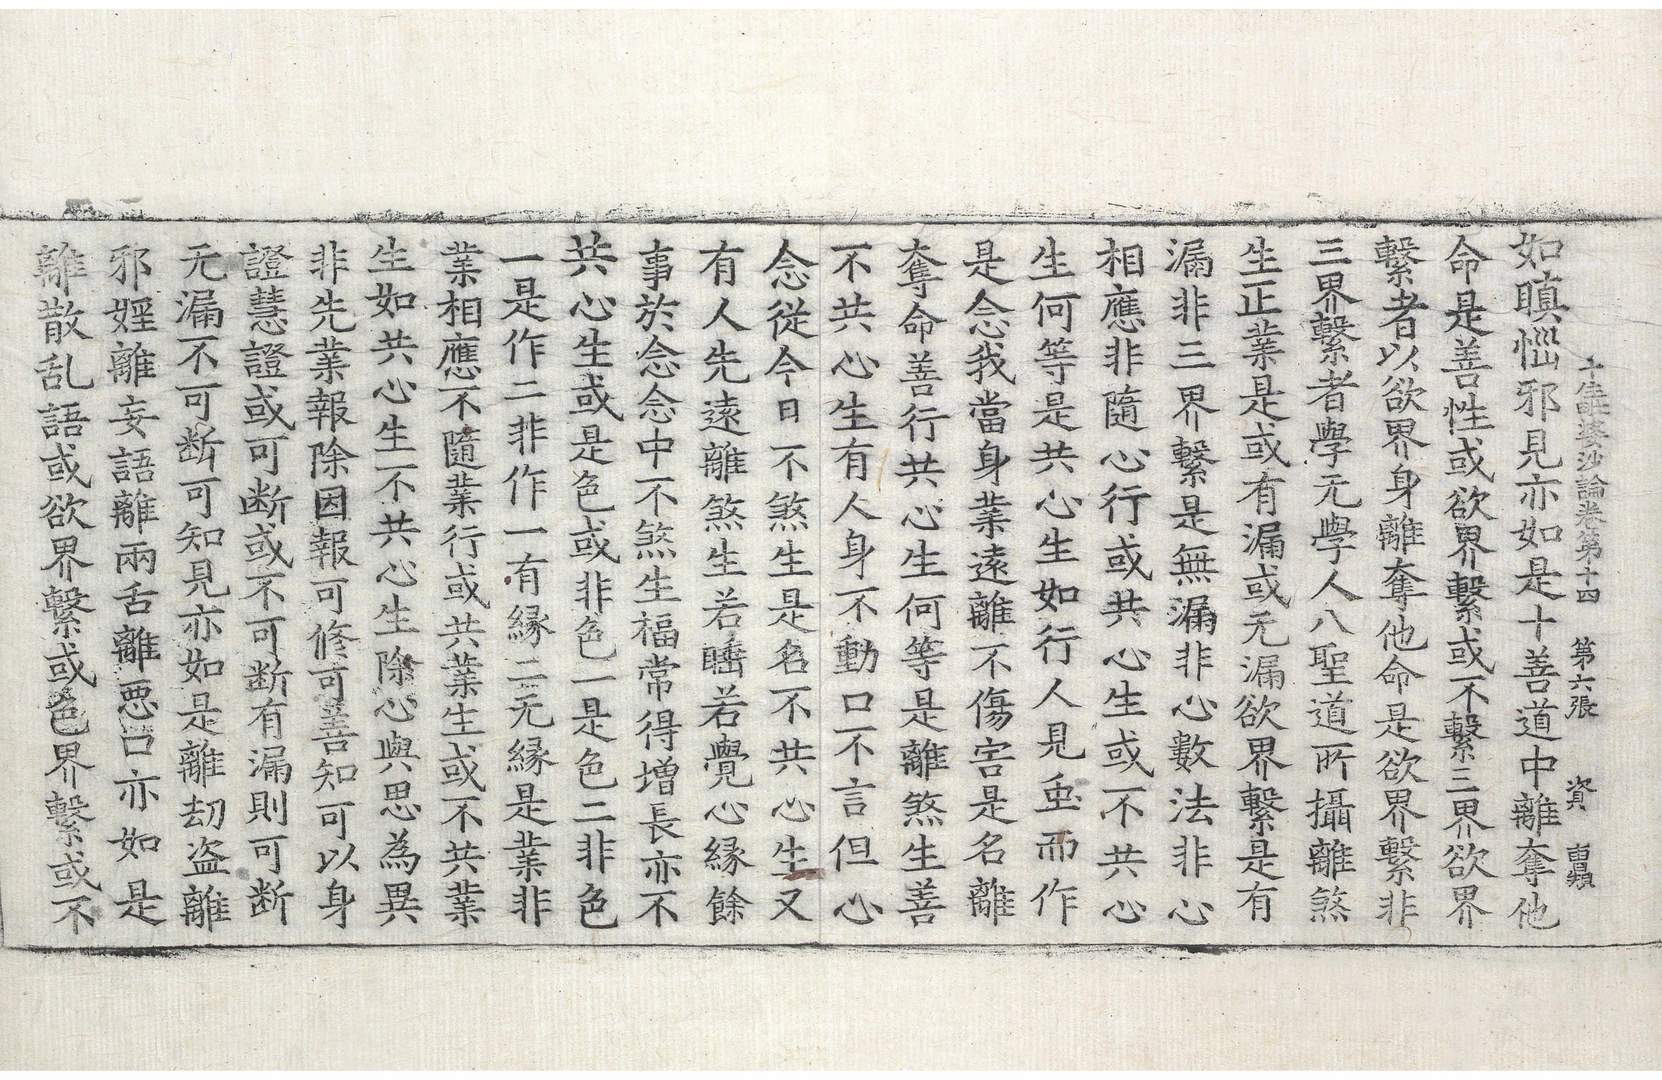 十住毗婆沙論卷第十四　第六張　資　曺㬎
如瞋惱邪見亦如是十善道中離奪他
命是善性或欲界繫或不繫三界欲界
繫者以欲界身離奪他命是欲界繫非
三界繫者學无學人八聖道所攝離煞
生正業是或有漏或无漏欲界繫是有
漏非三界繫是無漏非心數法非心
相應非隨心行或共心生或不共心
生何等是共心生如行人見虫而作
是念我當身業遠離不傷害是名離
奪命善行共心生何等是離煞生善
不共心生有人身不動口不言但心
念從今日不煞生是名不共心生又
有人先遠離煞生若睡若覺心緣餘
事於念念中不煞生福常得增長亦不
共心生或是色或非色一是色二非色
一是作二非作一有緣二无緣是業非
業相應不隨業行或共業生或不共業
生如共心生不共心生除心與思為異
非先業報除因報可修可善知可以身
證慧證或可断或不可断有漏則可断
无漏不可断可知見亦如是離劫盜離
邪婬離妄語離兩舌離惡口亦如是
離散乱語或欲界繫或色界繫或不